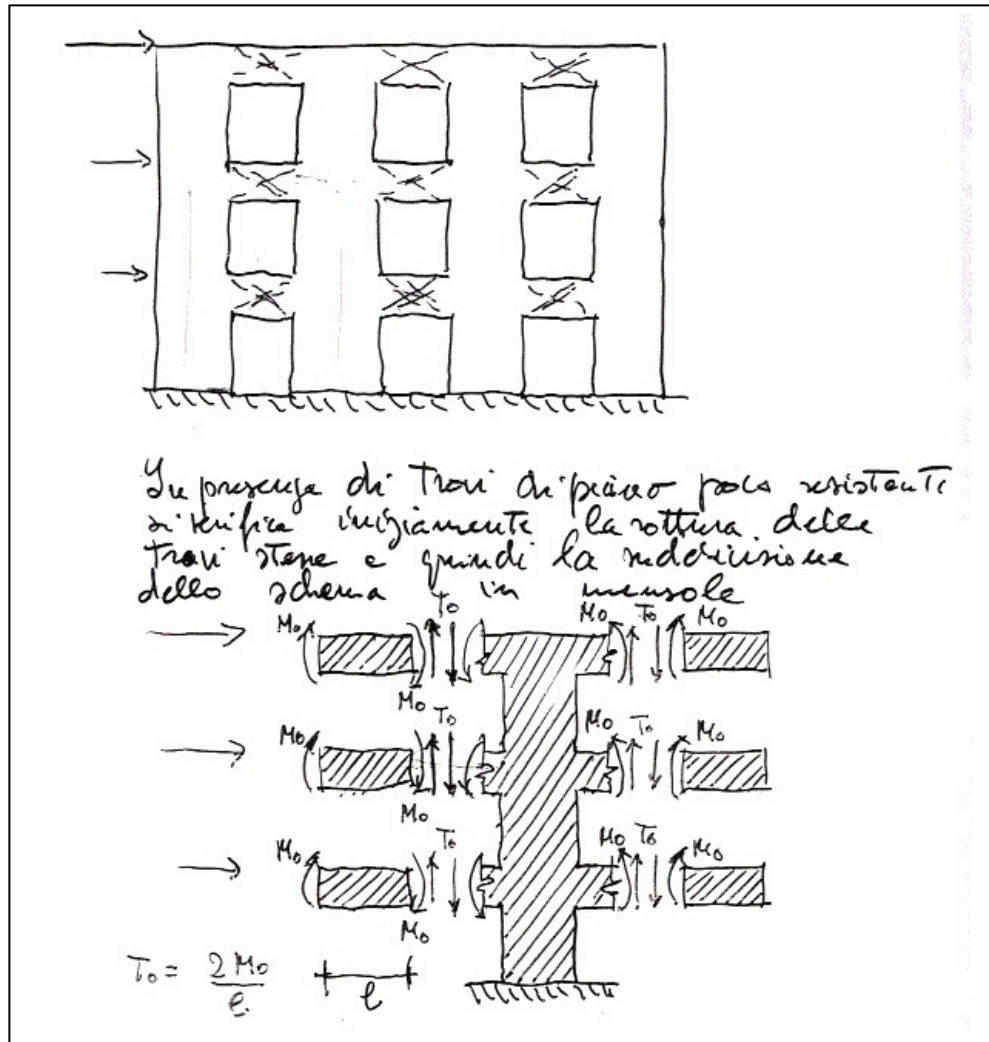 In presenza di travi di piano poco resistenti
si verifica inizialmente la rottura delle
travi stesse e quindi la suddivisione
dello schema in mensole
Mo To Mo To Mo
Mo
Mo To Mo To Mo
Mo
Mo To Mo To Mo
Mo
To = 2Mo / l
l